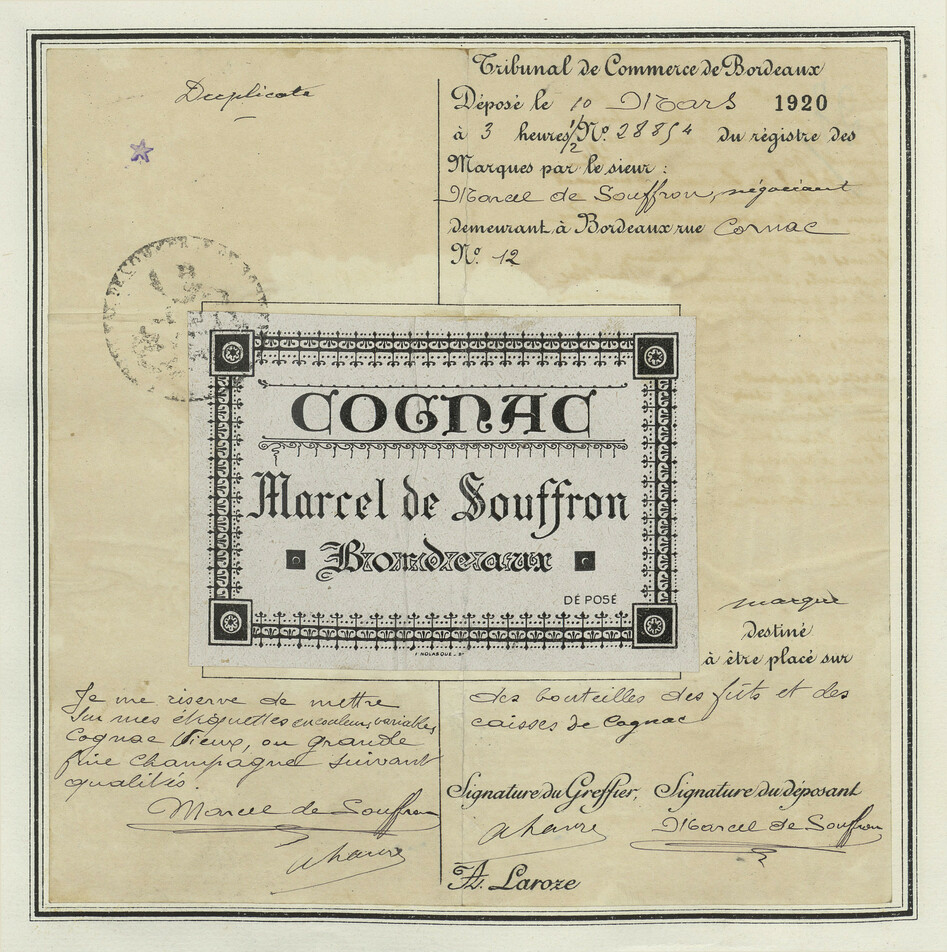 Duplicata
Tribunal de Commerce de Bordeaux
Déposé le 10 Mars 1920
à 3 heures 1/2 No. 28854 du régistre des
Marques par le sieur :
Marcel de Souffron, négociant
demeurant à Bordeaux rue Cornac
No. 12
COGNAC
Marcel de Souffron
Bordeaux
DÉPOSÉ
marque
Destiné
à être placé sur
des bouteilles des fûts et des
caisses de Cognac
Je me réserve de mettre
sur mes étiquettes en couleurs variables,
Cognac Vieux, ou grande
fine Champagne suivant
qualités.
Marcel de Souffron
Signature du Greffier, Signature du déposant
Marcel de Souffron
A. Laroze